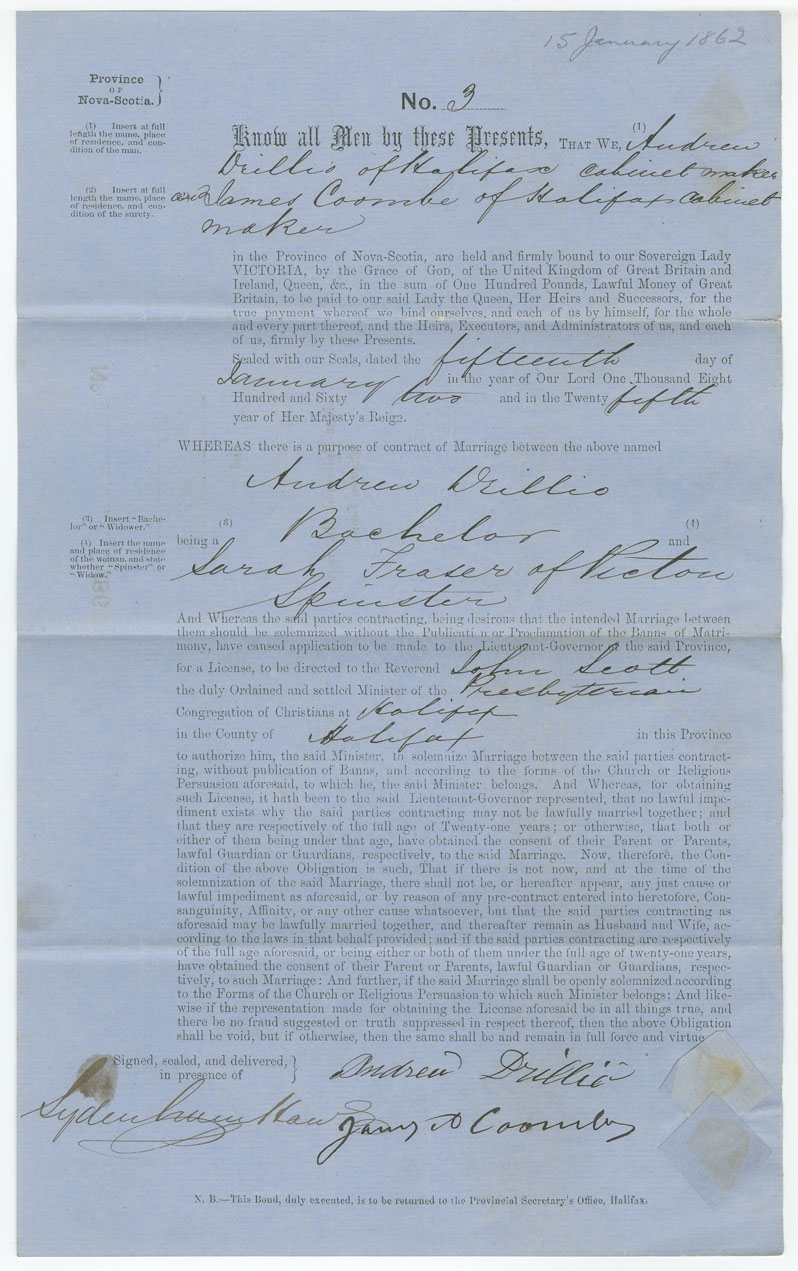 15 January 1862
Province
OF
Nova-Scotia.
No. 3
(1) Insert at full
length the name, place
of residence, and con-
dition of the man.
Know all Men by these Presents, THAT WE, (1) Andrew
Drillio of Halifax cabinet maker
(2) Insert at full
length the name, place
of residence, and con-
dition of the surety.
and James Coombe of Halifax cabinet
maker
in the Province of Nova-Scotia, are held and firmly bound to our Sovereign Lady
VICTORIA, by the Grace of GOD, of the United Kingdom of Great Britain and
Ireland, Queen, &c., in the sum of One Hundred Pounds, Lawful Money of Great
Britain, to be paid to our said Lady the Queen, Her Heirs and Successors, for the
true payment whereof we bind ourselves, and each of us by himself, for the whole
and every part thereof, and the Heirs, Executors, and Administrators of us, and each
of us, firmly by these Presents.
Sealed with our Seals, dated the fifteenth day of
January in the year of Our Lord One Thousand Eight
Hundred and Sixty two and in the Twenty fifth
year of Her Majesty's Reign.
WHEREAS there is a purpose of contract of Marriage between the above named
Andrew Drillio
(3) Insert "Bache-
lor" or "Widower."
(4) Insert the name
and place of residence
of the woman, and state
whether "Spinster" or
"Widow."
being a (3) Bachelor and (4)
Sarah Fraser of Pictou
Spinster
And Whereas the said parties contracting, being desirous that the intended Marriage between
them should be solemnized without the Publicati n or Proclamation of the Banns of Matri-
mony, have caused application to be made to the Lieutenant-Governor of the said Province,
for a License, to be directed to the Reverend John Scott
the duly Ordained and settled Minister of the Presbyterian
Congregation of Christians at Halifax
in the County of Halifax in this Province
to authorize him, the said Minister, to solemnize Marriage between the said parties contract-
ing, without publication of Banns, and according to the forms of the Church or Religious
Persuasion aforesaid, to which he, the said Minister belongs. And Whereas, for obtaining
such License, it hath been to the said Lieutenant-Governor represented, that no lawful impe-
diment exists why the said parties contracting may not be lawfully married together; and
that they are respectively of the full age of Twenty-one years; or otherwise, that both or
either of them being under that age, have obtained the consent of their Parent or Parents,
lawful Guardian or Guardians, respectively, to the said Marriage. Now, therefore, the Con-
dition of the above Obligation is such, That if there is not now, and at the time of the
solemnization of the said Marriage, there shall not be, or hereafter appear, any just cause or
lawful impediment as aforesaid, or by reason of any pre-contract entered into heretofore, Con-
sanguinity, Affinity, or any other cause whatsoever, but that the said parties contracting as
aforesaid may be lawfully married together, and thereafter remain as Husband and Wife, ac-
cording to the laws in that behalf provided; and if the said parties contracting are respectively
of the full age aforesaid, or being either or both of them under the full age of twenty-one years,
have obtained the consent of their Parent or Parents, lawful Guardian or Guardians, respec-
tively, to such Marriage: And further, if the said Marriage shall be openly solemnized according
to the Forms of the Church or Religious Persuasion to which such Minister belongs: And like-
wise if the representation made for obtaining the License aforesaid be in all things true, and
there be no fraud suggested or truth suppressed in respect thereof, then the above Obligation
shall be void, but if otherwise, then the same shall be and remain in full force and virtue.
Signed, sealed, and delivered,
in presence of
Andrew Drillio
Sydenham Howe
James Coombes
N. B.—This Bond, duly executed, is to be returned to the Provincial Secretary's Office, Halifax.